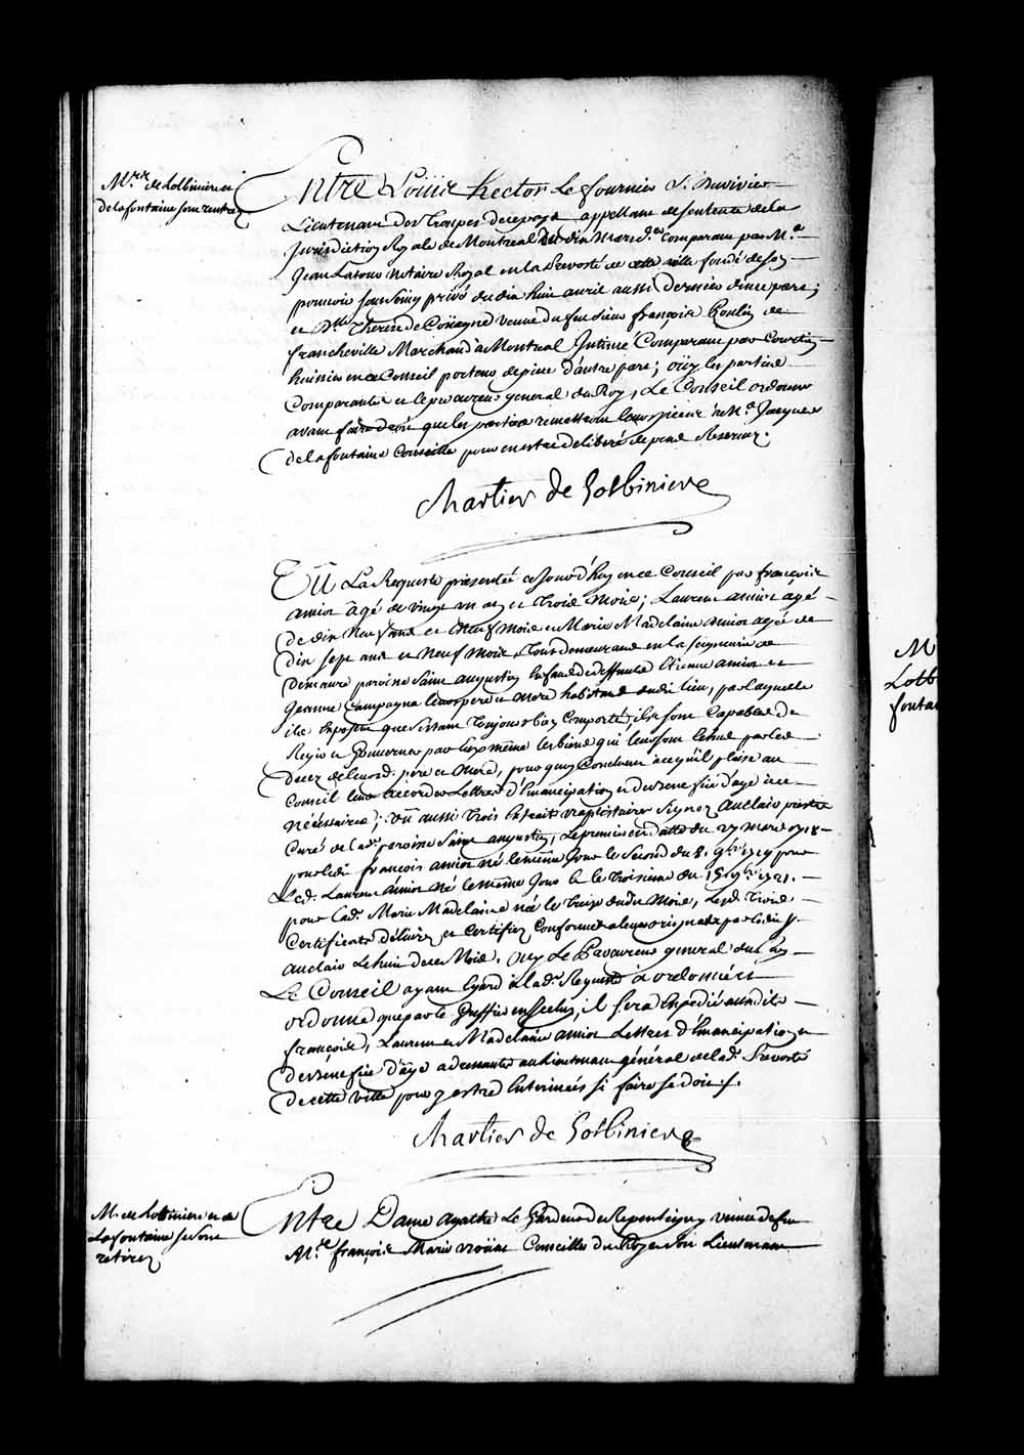 Mrs. de Lotbiniere et
de lafontaine sont rentrez
Entre Louis hector Le fournier Sr. Duvivier
Lieutenant des Troupes de ce pays appellant de sentence de la
Jurisdiction Royale de Montreal du dix mars der. Comparant par Me
Jean Latour notaire Royal en la Prevosté de cette ville fondé de son
pouvoir sous seing privé du dix huit avril aussi Dernier d'une part;
et Dlle Therese de Coüagne veuve du feu sieur françois Poulin de
francheville Marchand a Montreal Intimée Comparant par Courtin
huissier en ce Conseil porteur de pieces d'autre part; oüy les parties
Comparantes et le procureur general du Roy, Le Conseil ordonne
avant faire droit que les parties remettront leurs pieces a Me. Jacques
de lafontaine Conseiller pour en estre deliberé depens Reservez.
Chartier de Lotbiniere
Vû La Requeste présentée ce Jourd'huy en ce Conseil par françois
amiot âgé de vingt un an et trois mois; Laurent amiot agé
de dix neuf ans et neuf mois et Marie Madelaine amiot agée de
dix sept ans et neuf mois, tous demeurans en la seigneurie de
Demaure paroisse Saint augustin Enfans de deffunts Etienne amiot et
Jeanne Campagna leurs pere et mere habitans dudit lieu, par laquelle
ils Exposent que s'estant toujours bien Comporté, ils sont Capables de
Regir et Gouverner par Eux même les biens qui leur sont Echus par le
Decez de leursd. pere et mere, pourquoy Concluent à ce qu'il plaise au
Conseil leur accorder Lettres d'Emancipation et Dispense d'age a ce
nécessaires; vû aussi trois Extraits Signez Auclair prestre
Curé de lad. paroisse Saint augustin, Le premier datté du 27 mars 1718
pour led. françois amiot né le même Jour le Second du 8. 9bre 1719 pour
Led. Laurent amiot né le même Jour & le troisieme du 15 9bre 1721.
pour lad. Marie Madelaine née le treize dudit Mois, Lesd. Trois
Certificats délivrez et Certifiez Conformes a leurs originaux par ledit Sr.
auclair Le huit de ce Mois. Oüy Le Procureur general du Roy
Le Conseil ayant Egard à lad. Requeste a ordonné et
ordonne que par le Greffier en Iceluy, il sera Expedié ausdits
françois, Laurent et Madelaine amiot Lettres d'Emancipation et
Dispense d'âge adressantes au Lieutenant général de lad. Prevosté
de cette ville pour y estre Enterinées si faire se doit./.
Chartier de Lotbiniere
M. de Lotbiniere et de
Lafontaine se sont
retirez
Entre Dame agathe Le Gardeur de Repentigny veuve de feu
Me. françois Marie Conseiller du Roy et son Lieutenant
M
Lotb
fontai